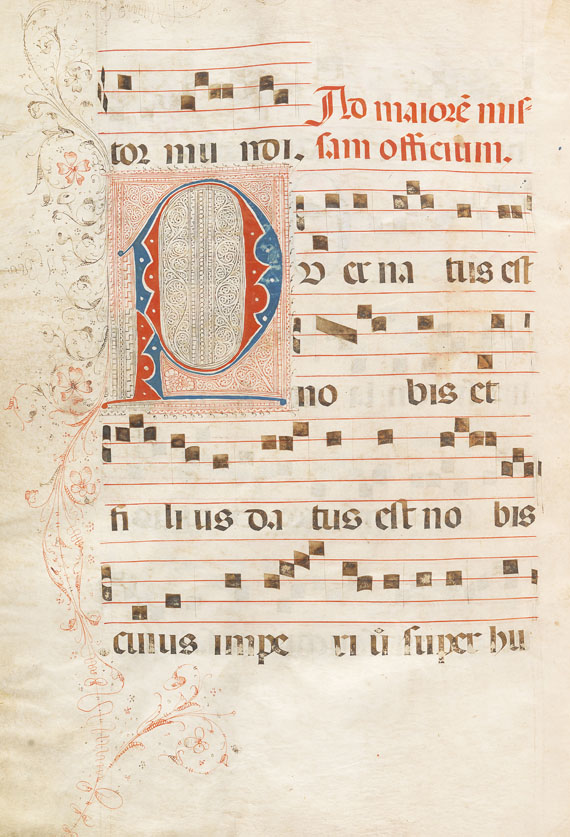 tor mu ndi.
Ad maiorē mis-
sam officium.
P
v er na tus est
no bis et
fi li us da tus est no bis
cuius impe ri ū super hu